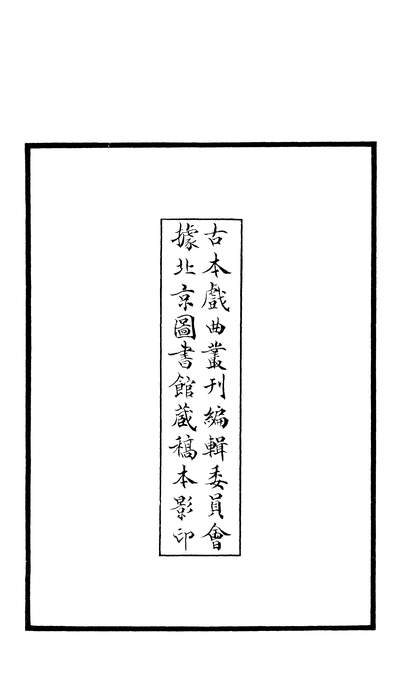 古本戲曲叢刊編輯委員會
據北京圖書館藏稿本影印